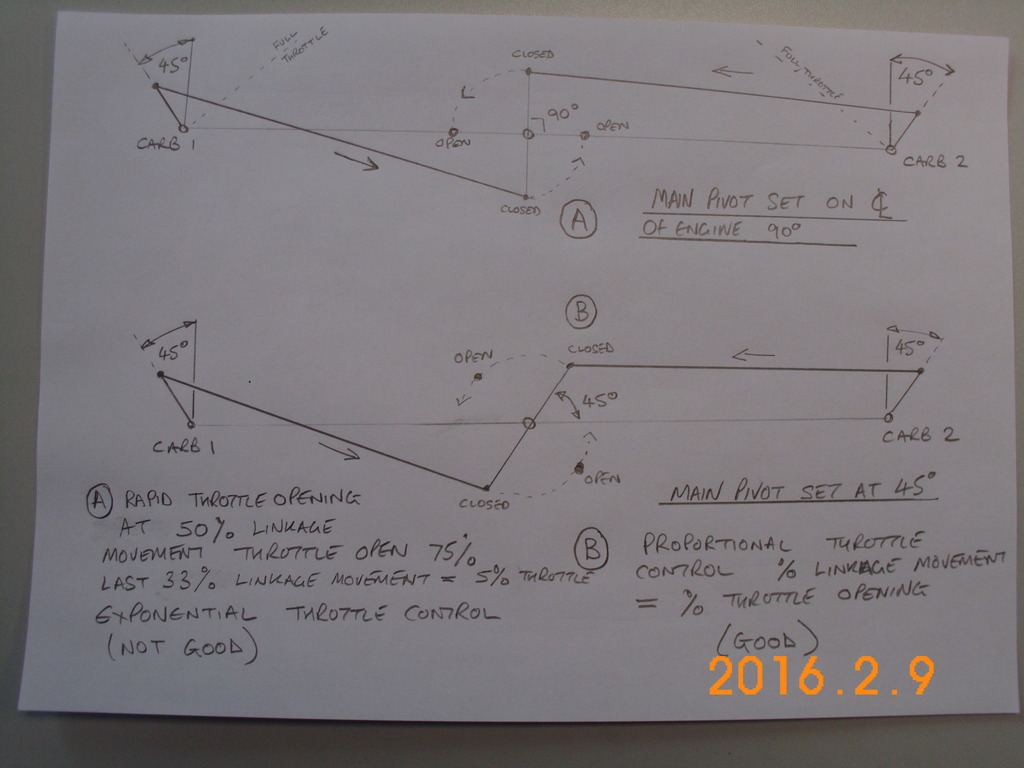 45°
FULL
THROTTLE
CLOSED
FULL THROTTLE
45°
90°
OPEN
OPEN
CARB 1
CARB 2
CLOSED
A
MAIN PIVOT SET ON ℄
OF ENGINE 90°
B
45°
OPEN
CLOSED
45°
45°
CARB 1
CARB 2
CLOSED
OPEN
MAIN PIVOT SET AT 45°
A RAPID THROTTLE OPENING
AT 50% LINKAGE
MOVEMENT THROTTLE OPEN 75%
LAST 33% LINKAGE MOVEMENT = 5% THROTTLE
EXPONENTIAL THROTTLE CONTROL
(NOT GOOD)
B PROPORTIONAL THROTTLE
CONTROL % LINKAGE MOVEMENT
= % THROTTLE OPENING
(GOOD)
2016.2.9